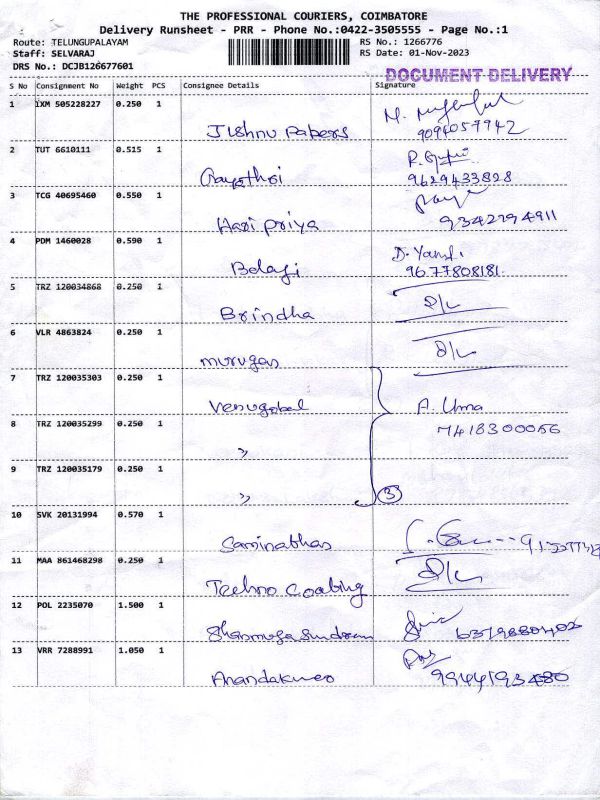 THE PROFESSIONAL COURIERS, COIMBATORE
Delivery Runsheet - PRR - Phone No.:0422-3505555 - Page No.:1
Route: TELUNGUPALAYAM RS No.: 1266776
Staff: SELVARAJ RS Date: 01-Nov-2023
DRS No.: DCJB126677601
DOCUMENT DELIVERY
S No Consignment No Weight PCS Consignee Details Signature
1 IXM 505228227 0.250 1
Jishnu Papers
2 TUT 6610111 0.515 1
Gayathri 9629433828
3 TCG 40695460 0.550 1
Hari priya 9342294911
4 PDM 1460028 0.590 1
Balaji 9677808181
5 TRZ 120034868 0.250 1
Brindha
6 VLR 4863824 0.250 1
murugan
7 TRZ 120035303 0.250 1
Venugobal A. Uma
8 TRZ 120035299 0.250 1 7418300056
"
9 TRZ 120035179 0.250 1
" 3
10 SVK 20131994 0.570 1
11 MAA 861468298 0.250 1
Techno Coating
12 POL 2235070 1.500 1
Shanmuga Sundaram
13 VRR 7288991 1.050 1